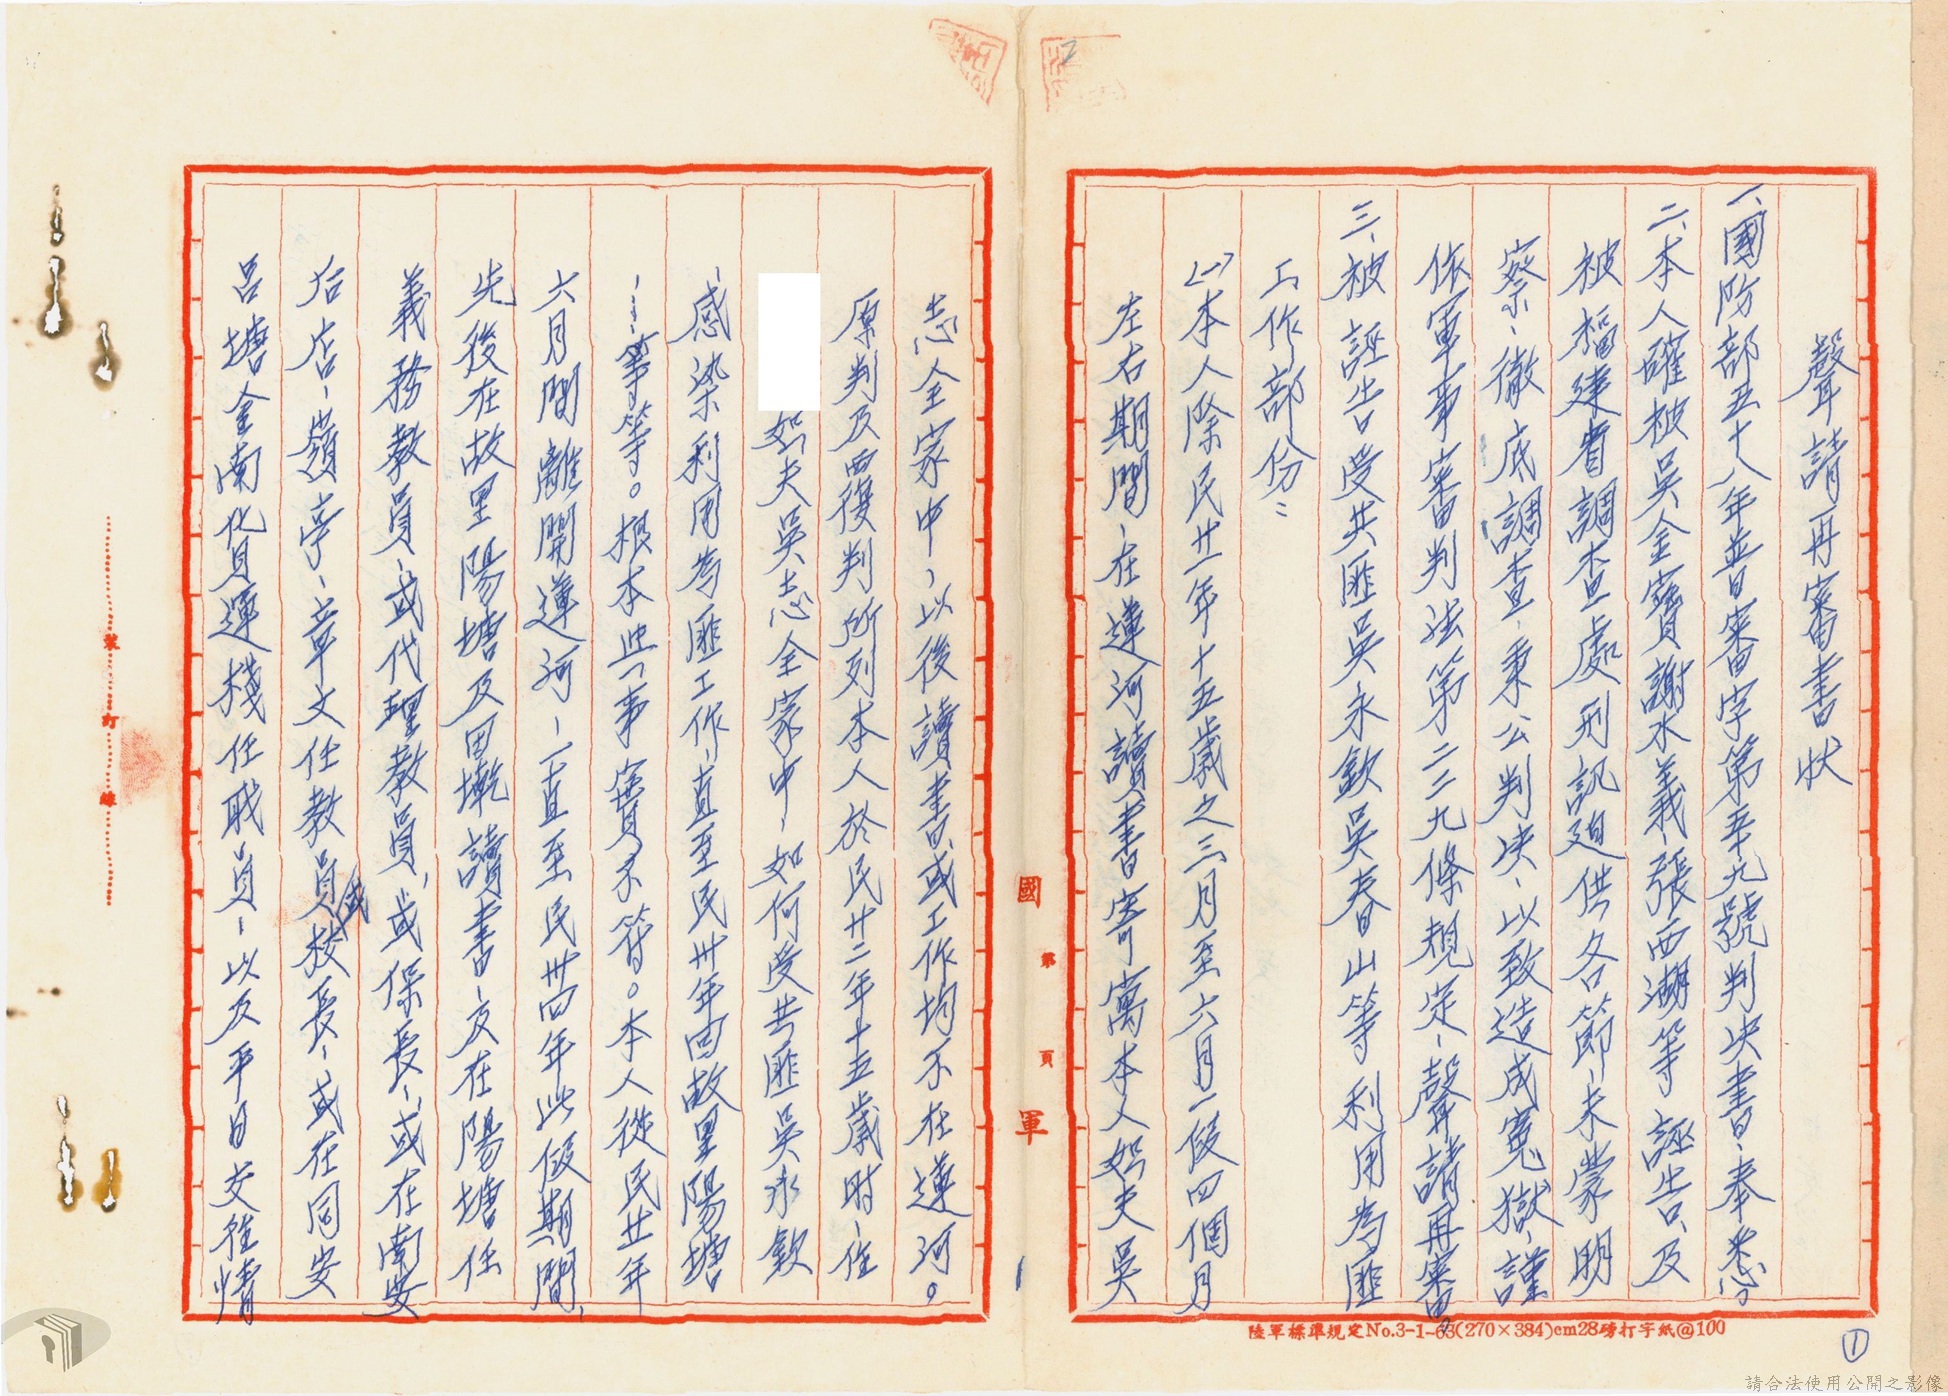 聲請再審書狀
一、國防部五十八年普審字第辛九號判决書、奉悉
二、本人確被吳金寶謝水義、張西湖等誣告、及
被福建省調查處刑訊迫供各節、未蒙明
察、徹底調查、秉公判决、以致造成寃獄、謹
依軍事審判法第二三九條規定、聲請再審。
三、被誣告受共匪吳永欽吳春山等利用為匪
工作部份：
(一)本人除民廿一年十五歲之三月至六月一段四個月
左右期間、在蓮河讀書寄寓本人姐夫吳
志全家中、以後讀書或工作均不在蓮河。
原判及覆判所列本人於民廿二年十五歲時、住
姐夫吳志全家中、如何受共匪吳永欽
感染利用為匪工作、直至民卅年回故里陽塘
……等等。根本與事實不符。本人從民廿年
六月間離開蓮河、一直至民卅四年此段期間、
先後在故里陽塘及田墘讀書、及在陽塘任
義務教員、或代理教員、或保長、或在南安
后店、嶺亭、章文任教員或校長、或在同安
呂塘金南貨運棧任職員、以及平日交往情
國 第 頁 軍
裝 訂 線
陸軍標準規定No.3-1-63(270×384)cm28磅打字紙@100
1
請合法使用公開之影像